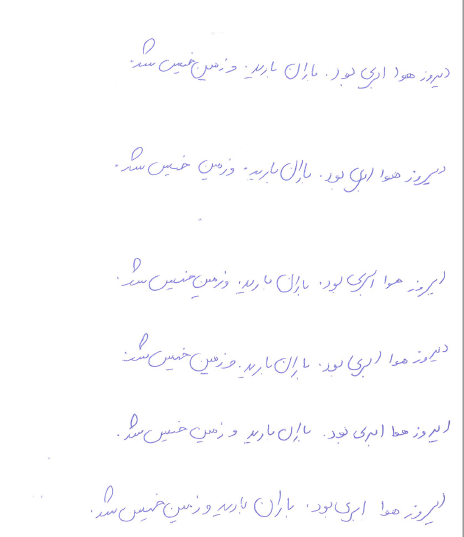 دیروز هوا ابری بود. باران بارید. و زمین خیس شد.
دیروز هوا ابری بود. باران بارید. و زمین خیس شد.
دیروز هوا ابری بود. باران بارید. و زمین خیس شد.
دیروز هوا ابری بود. باران بارید. و زمین خیس شد.
دیروز هوا ابری بود. باران بارید و زمین خیس شد.
دیروز هوا ابری بود. باران بارید و زمین خیس شد.